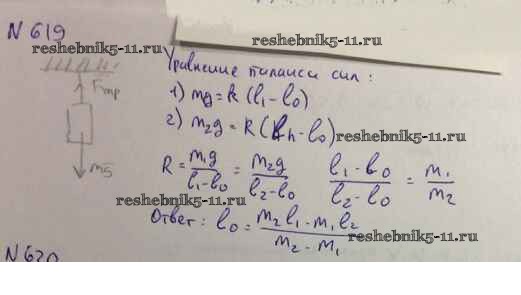 N 619
reshebnik5-11.ru
reshebnik5-11.ru
Уравнение баланса сил:
Fтр
1) mg = k (l₁ - l₀)
2) m₂g = k (lh - l₀)
reshebnik5-11.ru
mg
k = m₁g / (l₁ - l₀) = m₂g / (l₂ - l₀)   (l₁ - l₀) / (l₂ - l₀) = m₁ / m₂
reshebnik5-11.ru
Ответ: l₀ = (m₂l₁ - m₁l₂) / (m₂ - m₁)
reshebnik5-11.ru
N 620